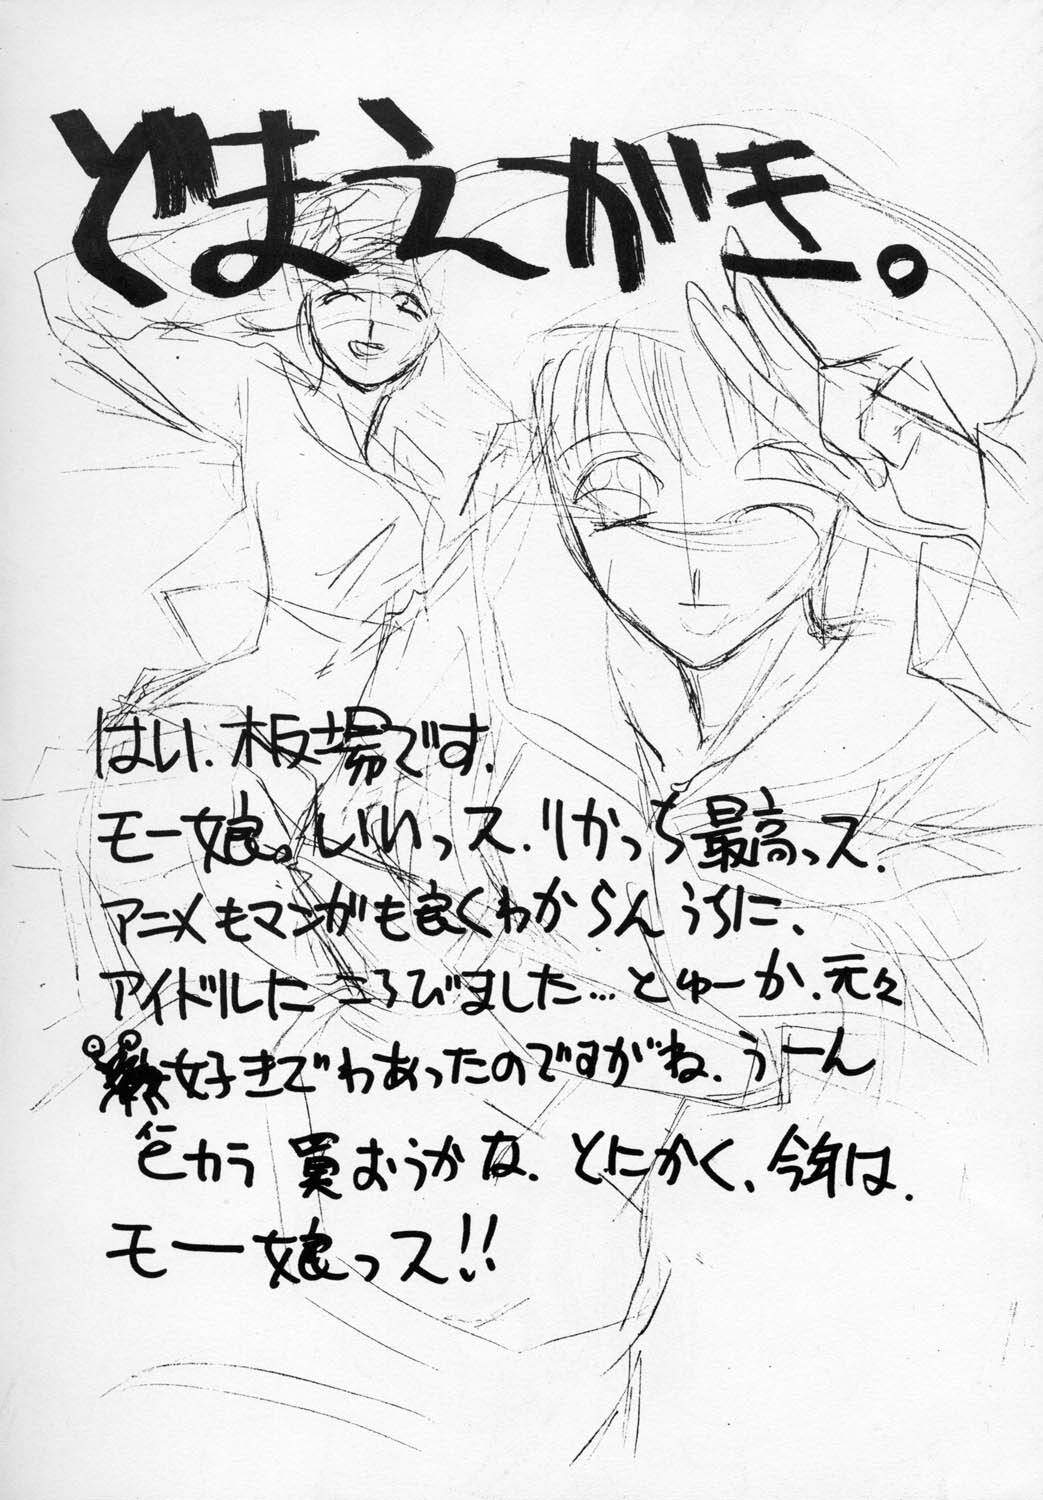 どまえがき。
はい、板場です。
モー娘。いいっス。りかっち最高っス。
アニメもマンガも良くわからんうちに、
アイドルにころびました…とゅーか、元々
好きでわあったのですがね。うーん
色カラ買おうかな。とにかく、今年は、
モー娘っス!!